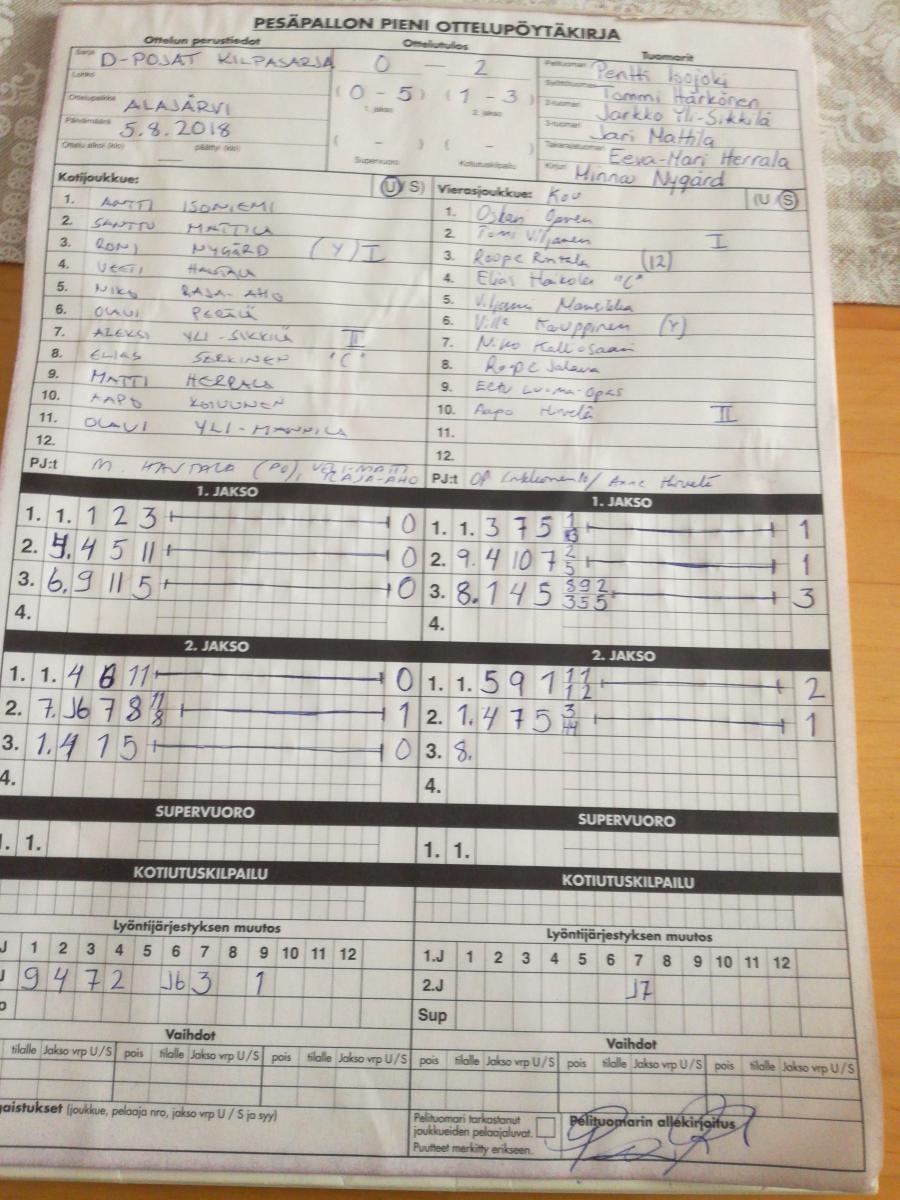 PESÄPALLON PIENI OTTELUPÖYTÄKIRJA
Ottelun perustiedot Ottelutulos Tuomarit
Sarja D-POJAT KILPASARJA 0 — 2 Pelituomari Pentti Isojoki
Lohko Tommi Härkönen
Ottelupaikka ALAJÄRVI (0 - 5) (1 - 3) 2-tuomari Jarkko Yli-Sikkilä
1. jakso 2. jakso 3-tuomari Jari Mattila
Päivämäärä 5.8.2018 ( - ) ( - ) Takarajatuomari Eeva-Mari Herrala
Ottelu alkoi (klo) — päättyi (klo) Supervuoro Kotiutuskilpailu Kirjuri Minna Nygård
Kotijoukkue: (U/S) Vierasjoukkue: Kou (U/S)
1. ANTTI ISONIEMI 1. Oskari
2. SANTTU MATTILA 2. Tomi Viljanen I
3. RONI NYGÅRD (Y) I 3. Roope Rintala (12)
4. VEETI HAUTALA 4. Elias Haikola "C"
5. NIKO RAJA-AHO 5. Viljami Mansikka
6. OLAVI PERÄLÄ 6. Ville Kauppinen (Y)
7. ALEKSI YLI-SIKKILÄ II 7. Niko Kalliosaari
8. ELIAS SARKINEN "C" 8. Roope Jalava
9. MATTI HERRALA 9. Eetu Luoma-Opas
10. AAPO KOIVUNEN 10. Aapo Hirvelä II
11. OLAVI YLI-MANNILA 11.
12. 12.
PJ:t M. HAUTALA (PO), VELI-MATTI RAJA-AHO PJ:t OP / Anne Hirvelä
1. JAKSO 1. JAKSO
1. 1. 1 2 3 0 1. 1. 3 7 5 1
2. 4. 4 5 11 0 2. 9. 4 10 7 2 5 1
3. 6. 9 11 5 0 3. 8. 1 4 5 8 9 2 3 5 5 3
4. 4.
2. JAKSO 2. JAKSO
1. 1. 4 6 11 0 1. 1. 5 9 1 11 12 2
2. 7. J6 7 8 11 8 1 2. 1. 4 7 5 3 1
3. 1. 4 1 5 0 3. 8.
4. 4.
SUPERVUORO SUPERVUORO
1. 1. 1. 1.
KOTIUTUSKILPAILU KOTIUTUSKILPAILU
Lyöntijärjestyksen muutos Lyöntijärjestyksen muutos
J 1 2 3 4 5 6 7 8 9 10 11 12 1.J 1 2 3 4 5 6 7 8 9 10 11 12
J 9 4 7 2 J6 3 1 2.J J7
p Sup
Vaihdot Vaihdot
tilalle Jakso vrp U/S pois tilalle Jakso vrp U/S pois tilalle Jakso vrp U/S pois tilalle Jakso vrp U/S pois tilalle Jakso vrp U/S pois tilalle Jakso vrp U/S
gaistukset (joukkue, pelaaja nro, jakso vrp U / S ja syy)
Pelituomari tarkastanut joukkueiden pelaajaluvat. Pelituomarin allekirjoitus
Puutteet merkitty erikseen.